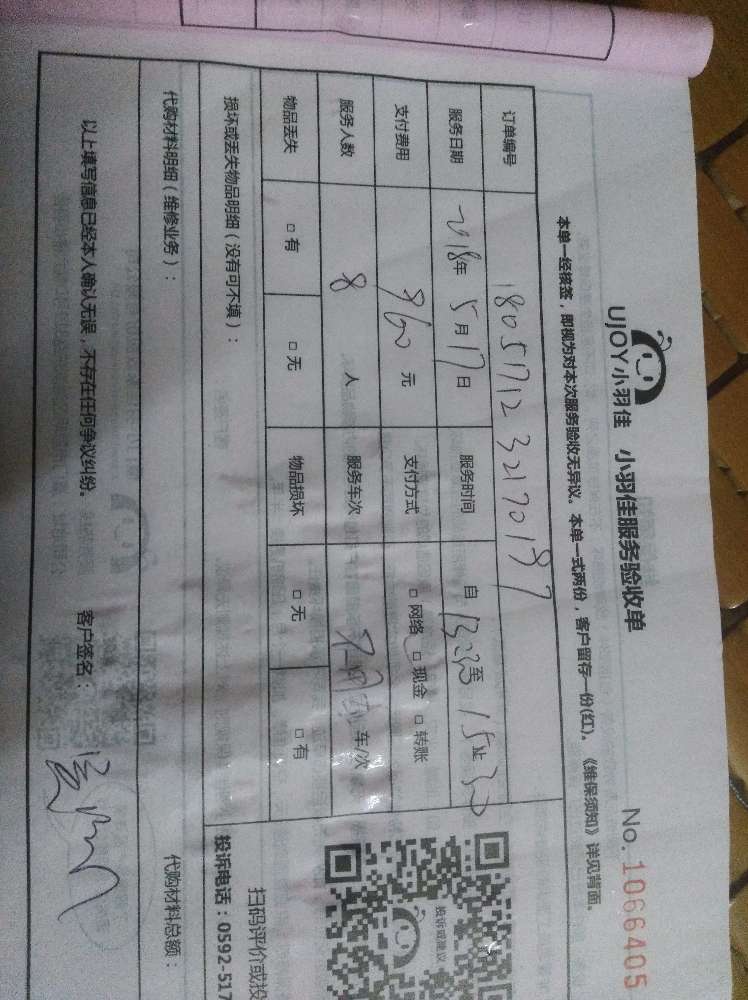 UJOY小羽佳 小羽佳服务验收单 No. 1066405
本单一经核签,即视为对本次服务验收无异议。本单一式两份,客户留存一份(红)。《维保须知》详见背面。
订单编号 1805171232170187
服务日期 2018年 5月17日 服务时间 自 至 15止30
支付费用 960元 支付方式 □ 网络 □ 现金 □ 转账
服务人数 8 人 服务车次 车/次
物品丢失 □ 有 □ 无 物品损坏 □ 无 □ 有
损坏或丢失物品明细(没有可不填):
投诉或建议
扫码评价或投
投诉电话:0592-517
代购材料明细(维修业务): 代购材料总额:
以上填写信息已经本人确认无误,不存在任何争议纠纷。 客户签名: